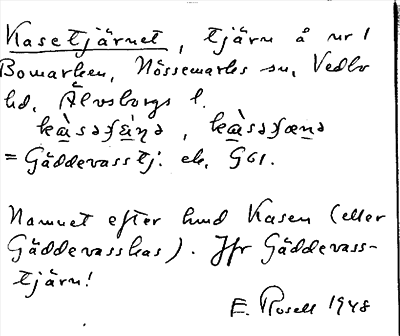 Kasetjärnet, tjärn å nr 1
Bomarken, Nössemarks sn, Vedbo
hd, Älvsborgs l.
kàsəʃæ̀ṇə, kasəʃænə
= Gäddevasstj. ek. G61.
Namnet efter hmd Kasen (eller
Gäddevasskas). Jfr Gäddevass-
tjärn!
E. Rosell 1948